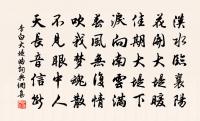 漢水臨襄陽
花開大堤暖
佳期大堤下
淚向南雲滿
春風無復情
吹我夢魂散
不見眼中人
天長音信斷
李白大堤曲詞典網書